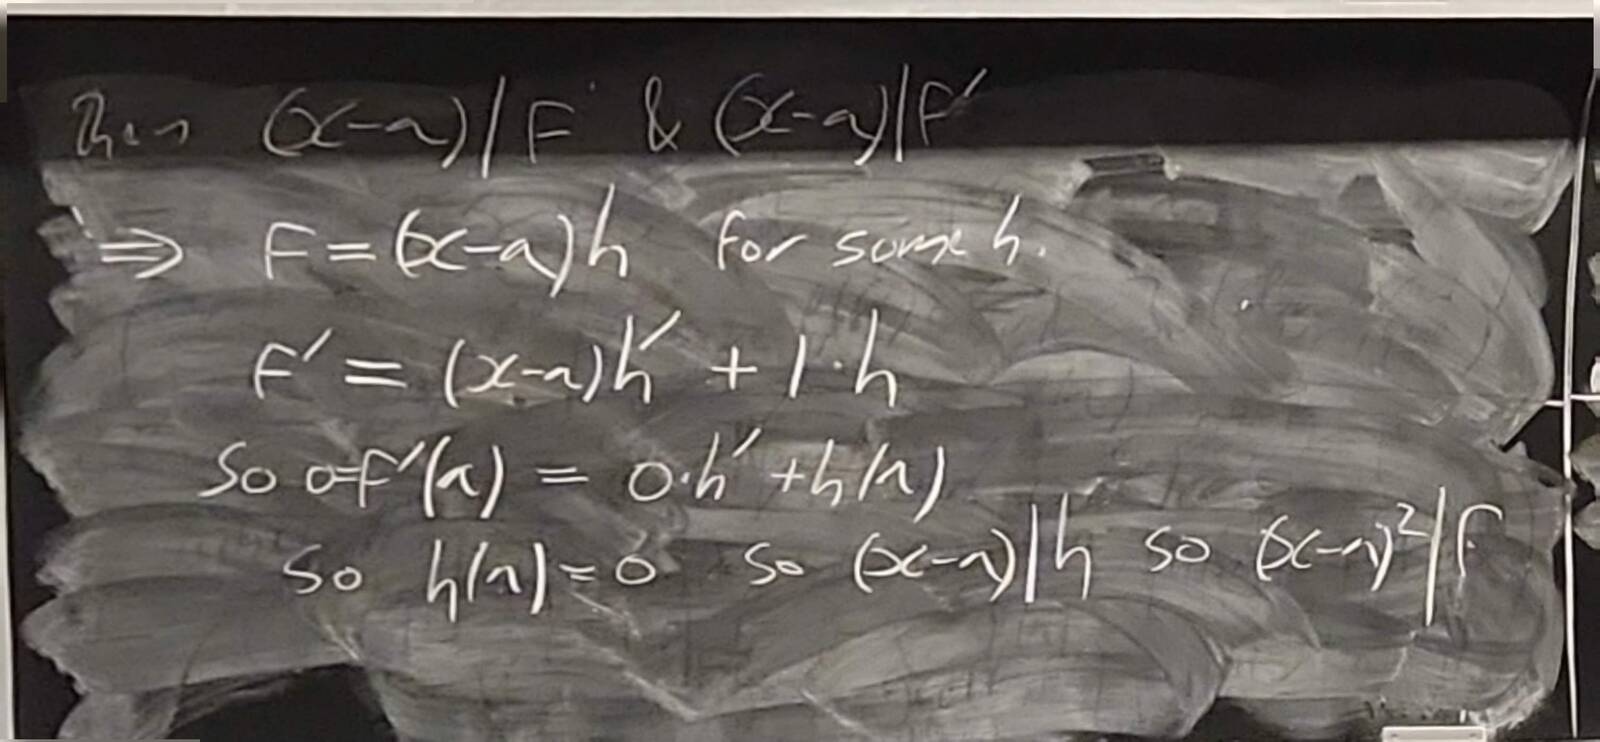 Then (x-a)|F & (x-a)|F'
⇒ F=(x-a)h for some h.
F' = (x-a)h' + 1·h
So 0=F'(a) = 0·h' + h(a)
So h(a)=0 so (x-a)|h so (x-a)²|F